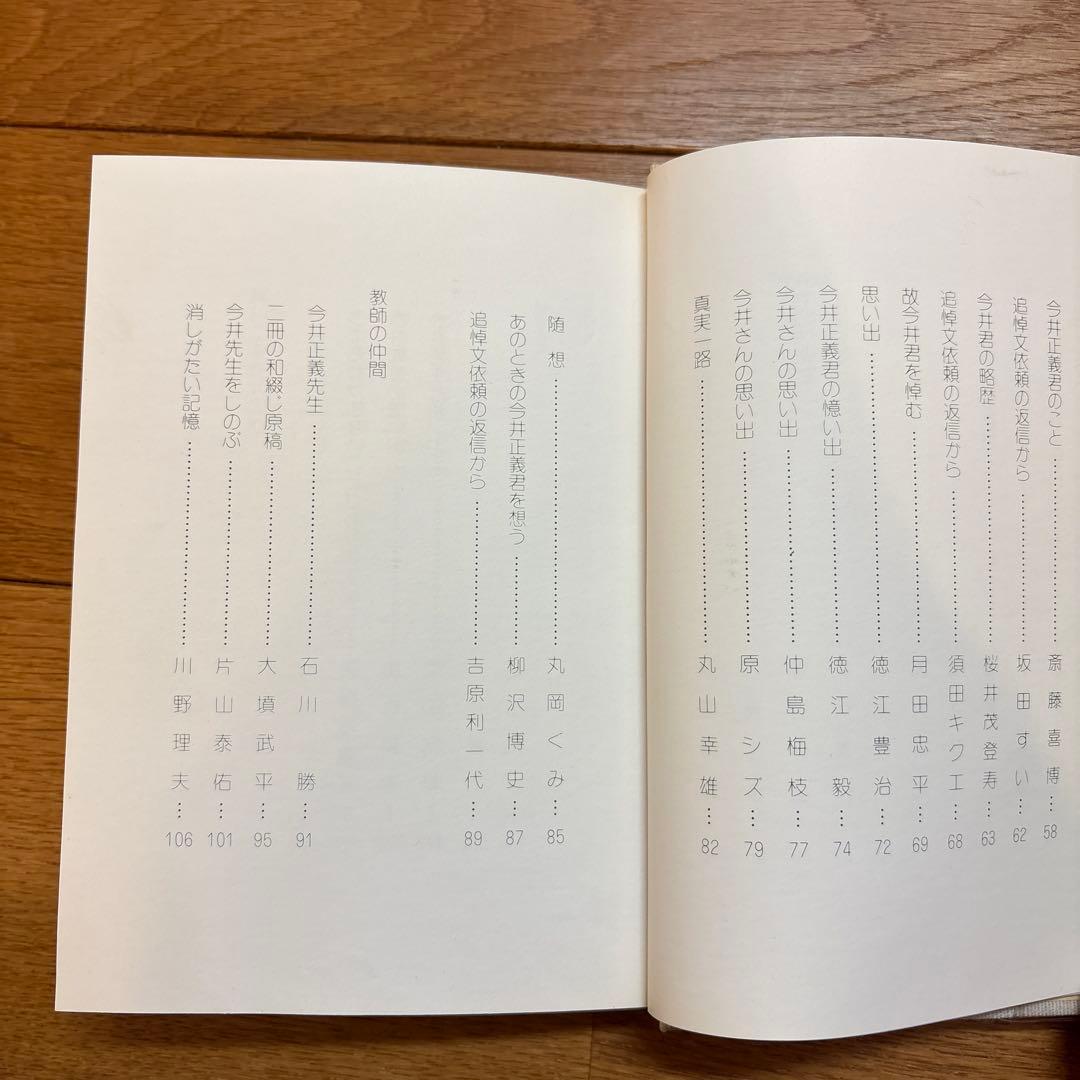 今井正義君のこと…………斎藤喜博…58
追悼文依頼の返信から…………坂田すい…62
今井君の略歴…………桜井茂登寿…63
追悼文依頼の返信から…………須田キクエ…68
故今井君を悼む…………月田忠平…69
思い出…………徳江豊治…72
今井正義君の憶い出…………徳江毅…74
今井さんの思い出…………仲島梅枝…77
今井さんの思い出…………原シズ…79
真実一路…………丸山幸雄…82
随想…………丸岡くみ…85
あのときの今井正義君を想う…………柳沢博史…87
追悼文依頼の返信から…………吉原利一代…89
教師の仲間
今井正義先生…………石川勝…91
二冊の和綴じ原稿…………大墳武平…95
今井先生をしのぶ…………片山泰佑…101
消しがたい記憶…………川野理夫…106